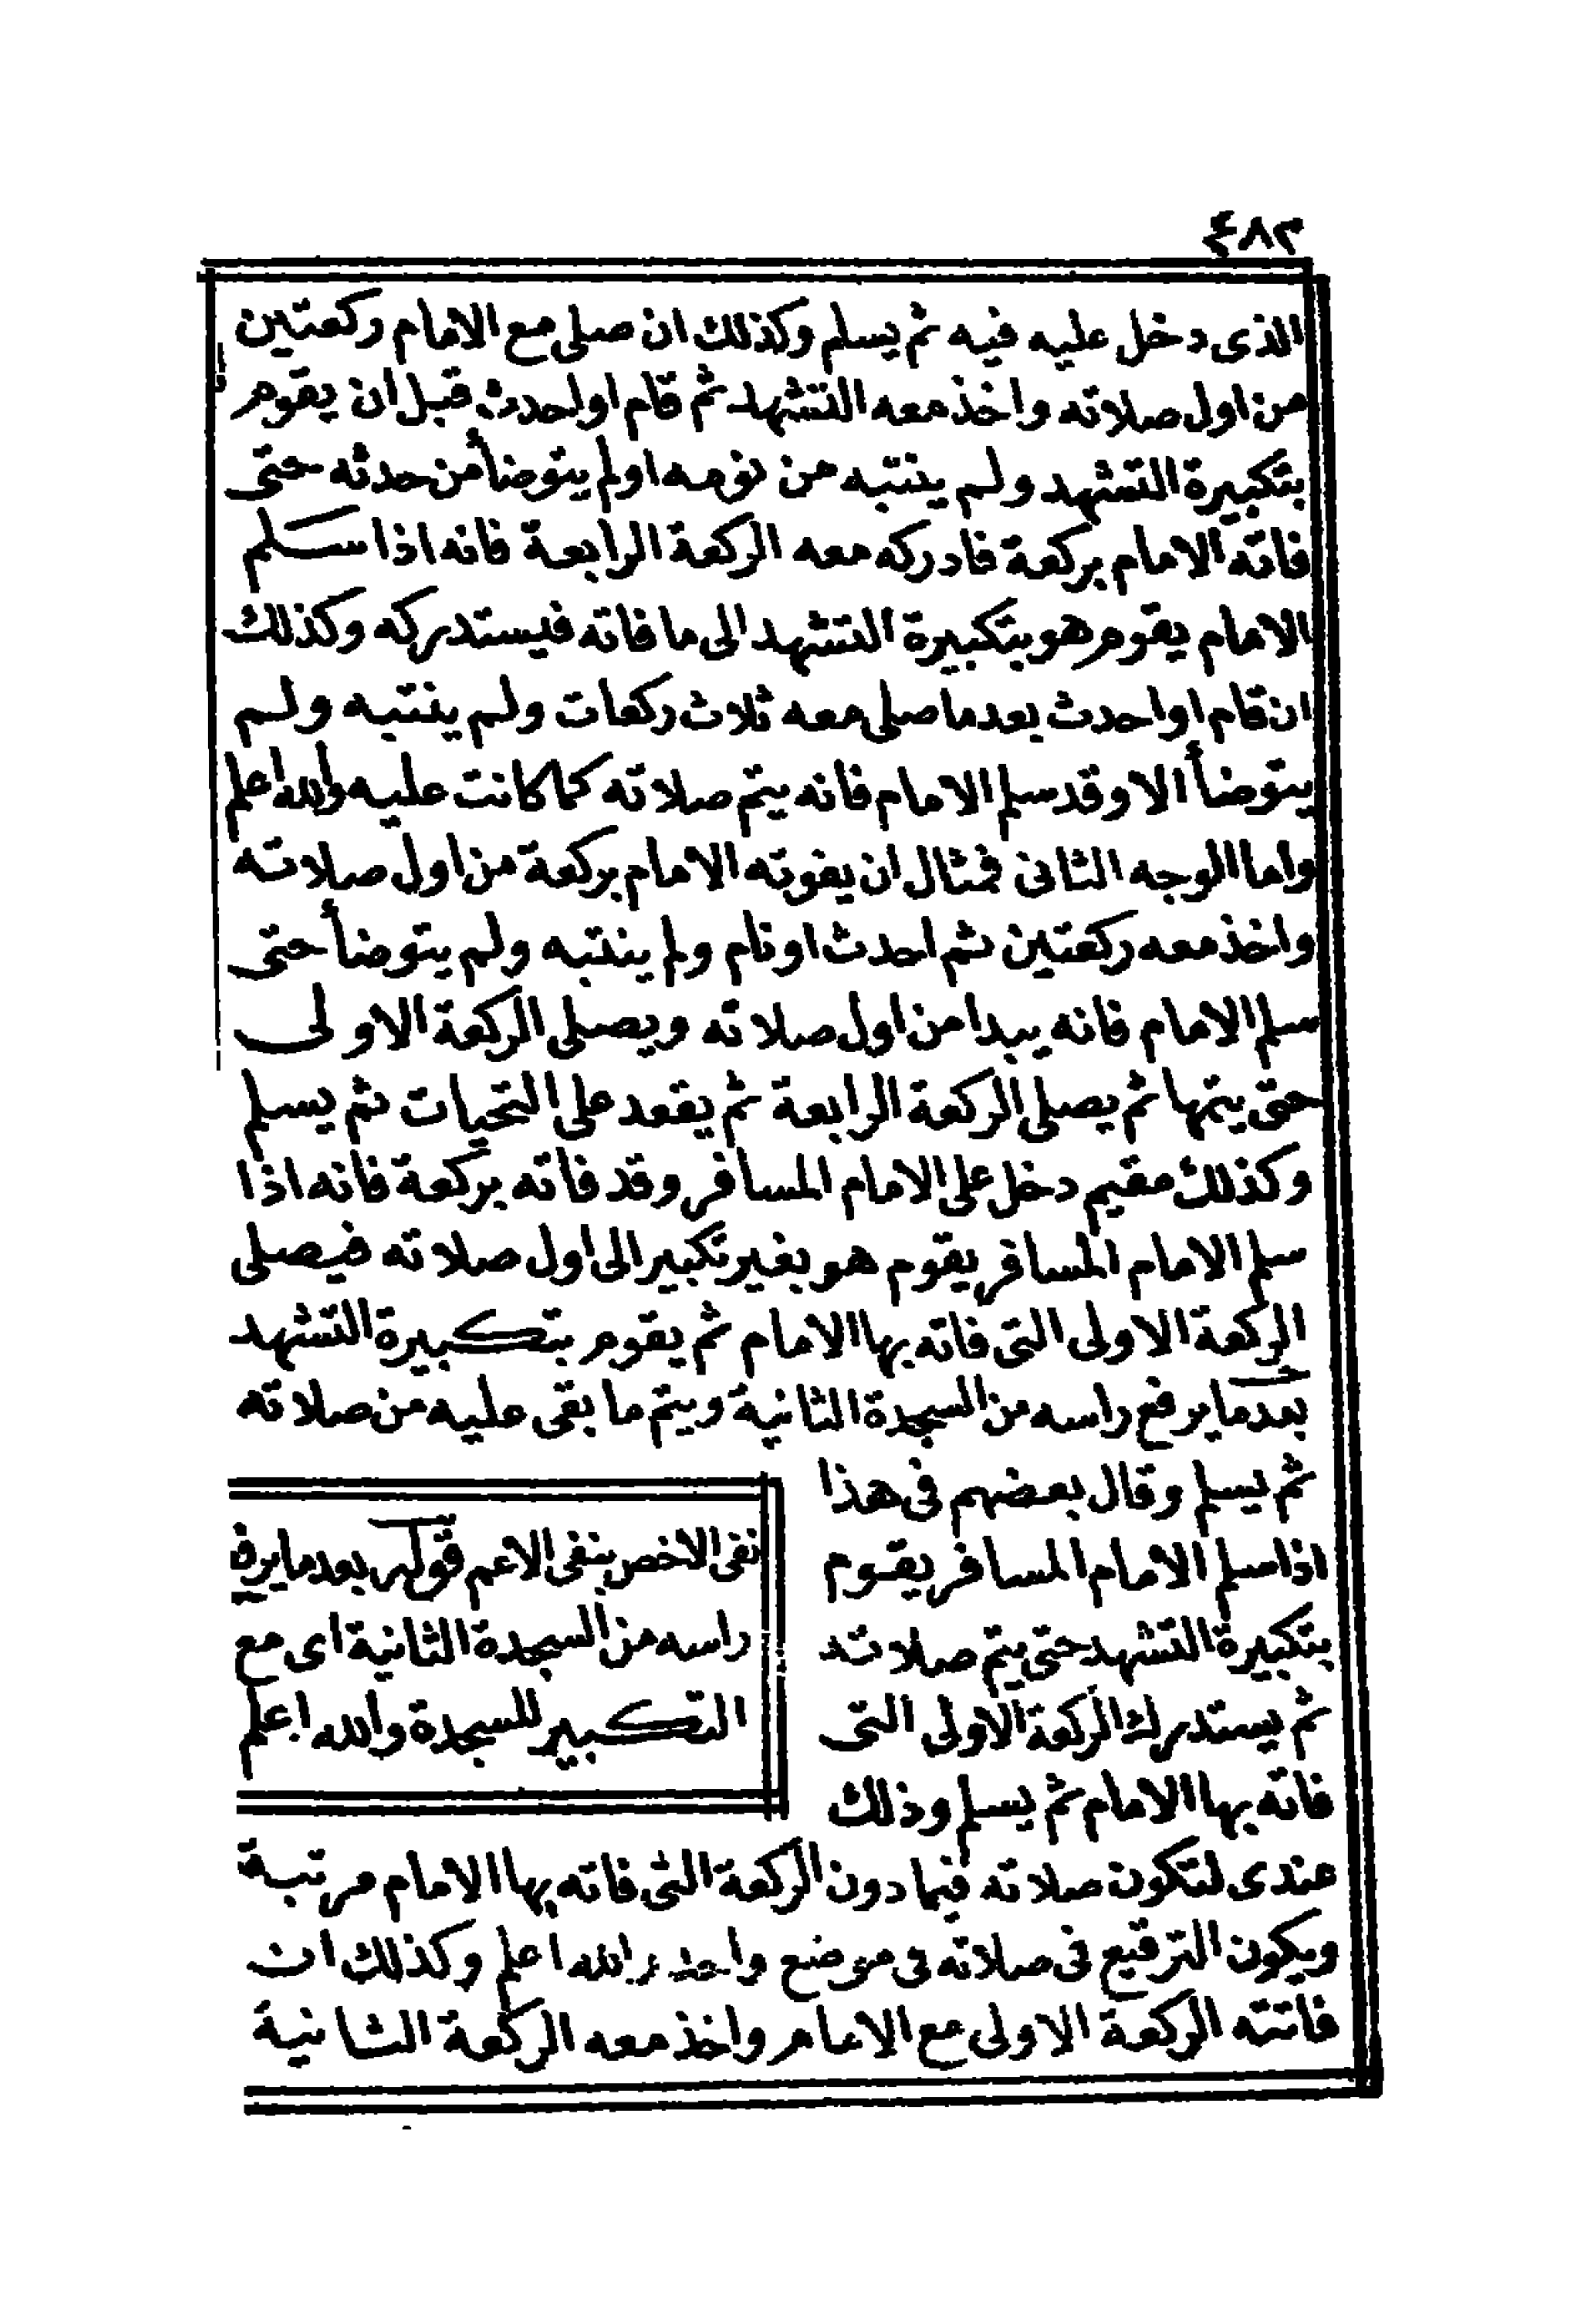 ٤٨٢
الذى دخل عليه فيه ثم يسلم وكذلك ان صلى مع الامام ركعتين
من اول صلاته واخذ معه التشهد ثم قام او احدث قبل ان يقوم
بتكبيرة التشهد ولم ينتبه من نومه او لم يتوضأ من حدثه حتى
فاته الامام بركعة فادركه معه الركعة الرابعة فانه اذا سلم
الامام يقوم هو بتكبيرة التشهد الى ما فاته فيستدركه وكذلك
ان قام او احدث بعد ما صلى معه ثلاث ركعات ولم ينتبه ولم
يتوضأ الا وقد سلم الامام فانه يتم صلاته كما كانت عليه والله اعلم
واما الوجه الثانى فمثال ان يفوته الامام بركعة من اول صلاته
واخذ معه ركعتين ثم احدث او نام ولم ينتبه ولم يتوضأ حتى
سلم الامام فانه يبدا من اول صلاته ويصلى الركعة الاولى
حتى يتمها ثم يصلى الركعة الرابعة ثم يقعد على التحيات ثم يسلم
وكذلك مقيم دخل على الامام المسافر وقد فاته بركعة فانه اذا
سلم الامام المسافر يقوم هو بغير تكبير الى اول صلاته فيصلى
الركعة الاولى التى فاته بها الامام ثم يقوم بتكبيرة التشهد
بعد ما يرفع راسه من السجدة الثانية ويتم ما بقى عليه من صلاته
ثم يسلم وقال بعضهم فى هذا
اذا سلم الامام المسافر يقوم
بتكبيرة التشهد حتى يتم صلاته
ثم يستدرك الركعة الاولى التى
فاته بها الامام ثم يسلم وذلك
عندى لتكون صلاته فيما دون الركعة التى فاته بها الامام مرتبة
ويكون الترقيع فى صلاته فى موضع واحد والله اعلم وكذلك ان
فاتته الركعة الاولى مع الامام واخذ معه الركعة الثانية
نفى الاخص بنفى الاعم قوله بعد ما يرفع
راسه من السجدة الثانية اى مع
التكبير للسجدة والله اعلم